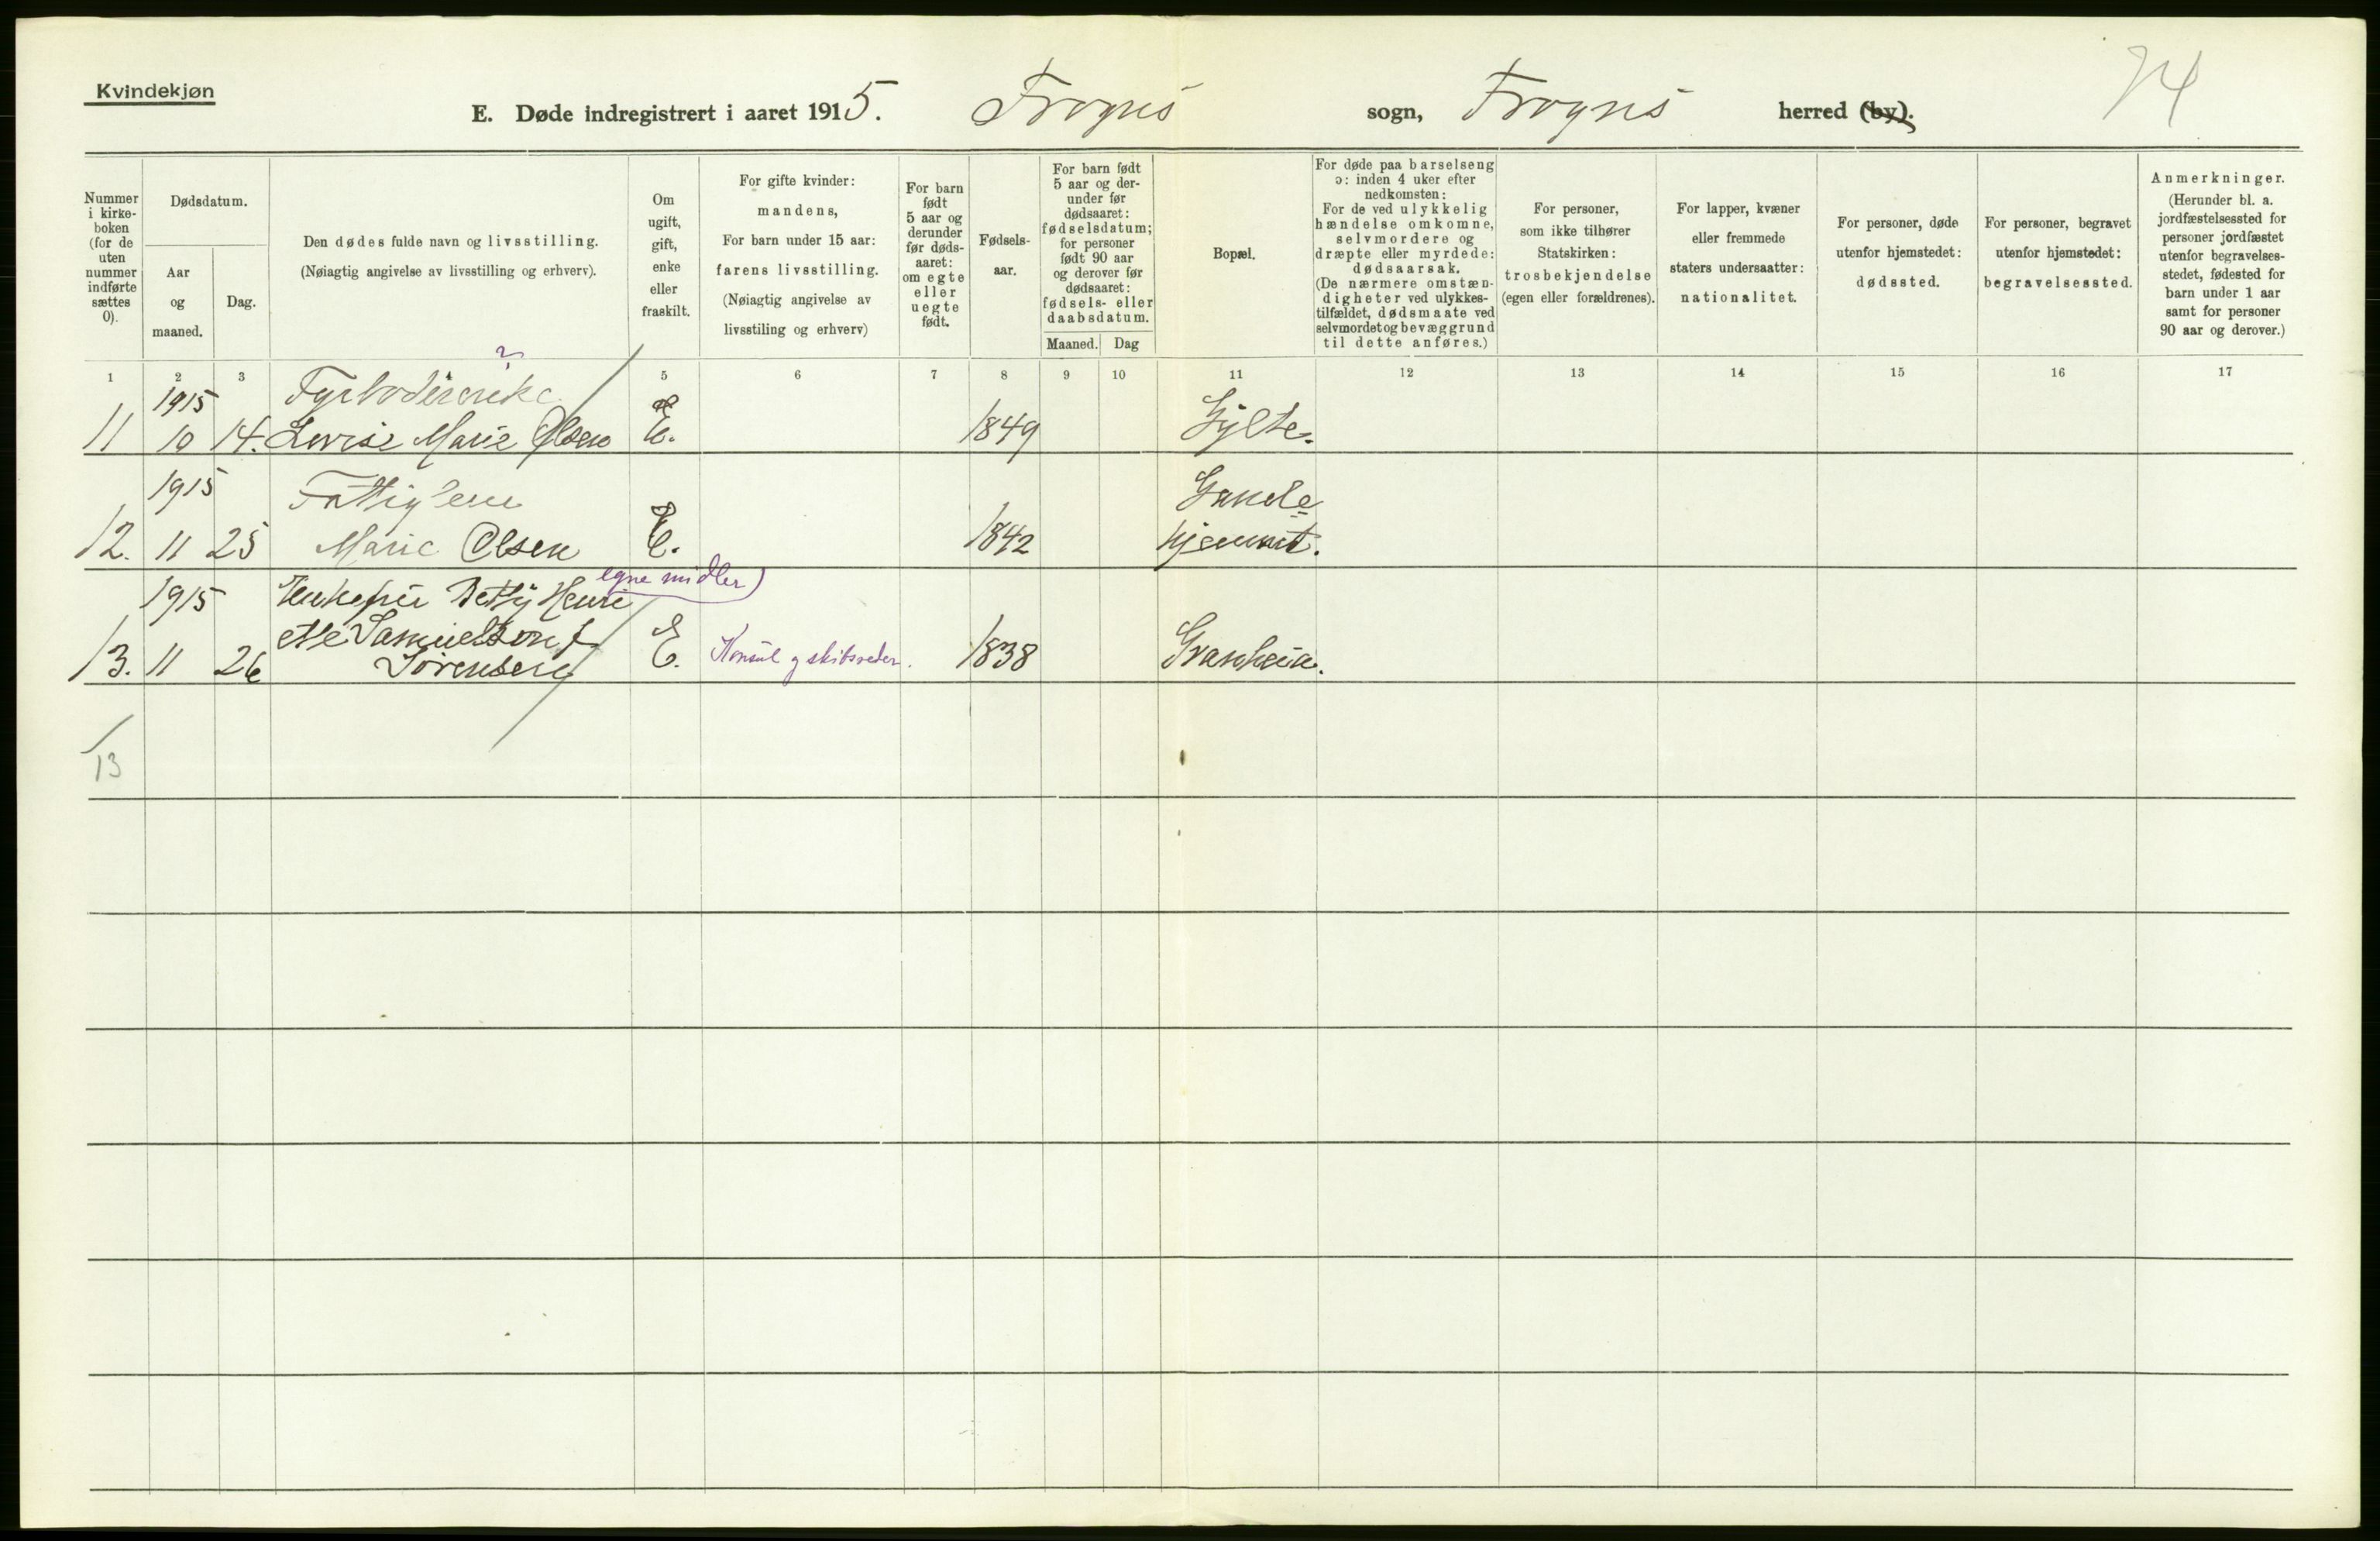 Kvindekjøn
E. Døde indregistrert i aaret 1915. Frogns sogn, Frogns herred (by).
24
Nummer i kirke-boken (for de uten nummer indførte sættes 0).
Dødsdatum.
Aar og maaned.
Dag.
Den dødes fulde navn og livsstilling.
(Nøiagtig angivelse av livsstilling og erhverv).
Om ugift, gift, enke eller fraskilt.
For gifte kvinder:
mandens,
For barn under 15 aar:
farens livsstilling.
(Nøiagtig angivelse av
livsstiling og erhverv)
For barn født 5 aar og derunder før døds-aaret: om egte eller uegte født.
Fødsels-aar.
For barn født 5 aar og der-under før dødsaaret: fødselsdatum; for personer født 90 aar og derover før dødsaaret: fødsels- eller daabsdatum.
Maaned.
Dag
Bopæl.
For døde paa barselseng
ɔ: inden 4 uker efter
nedkomsten:
For de ved ulykkelig
hændelse omkomne,
selvmordere og
dræpte eller myrdede:
dødsaarsak.
(De nærmere omstæn-
digheter ved ulykkes-
tilfældet, dødsmaate ved
selvmordet og bevæggrund
til dette anføres.)
For personer,
som ikke tilhører
Statskirken:
trosbekjendelse
(egen eller forældrenes).
For lapper, kvæner
eller fremmede
staters undersaatter:
nationalitet.
For personer, døde
utenfor hjemstedet:
dødssted.
For personer, begravet
utenfor hjemstedet:
begravelsessted.
Anmerkninger.
(Herunder bl. a.
jordfæstelsessted for
personer jordfæstet
utenfor begravelses-
stedet, fødested for
barn under 1 aar
samt for personer
90 aar og derover.)
1 2 3 4 5 6 7 8 9 10 11 12 13 14 15 16 17
?
1915
11 10 14. Lovise Marie Olsen E. 1849 Hylte.
1915 Fattiglem
12. 11 25 Marie Olsen E. 1842 hjemmet.
egne midler)
1915 Enkefru Betty Henri
ette Samuelson f.
13. 11 26 Sörensen E. Konsul og skibsreder. 1838 Svanheim.
13